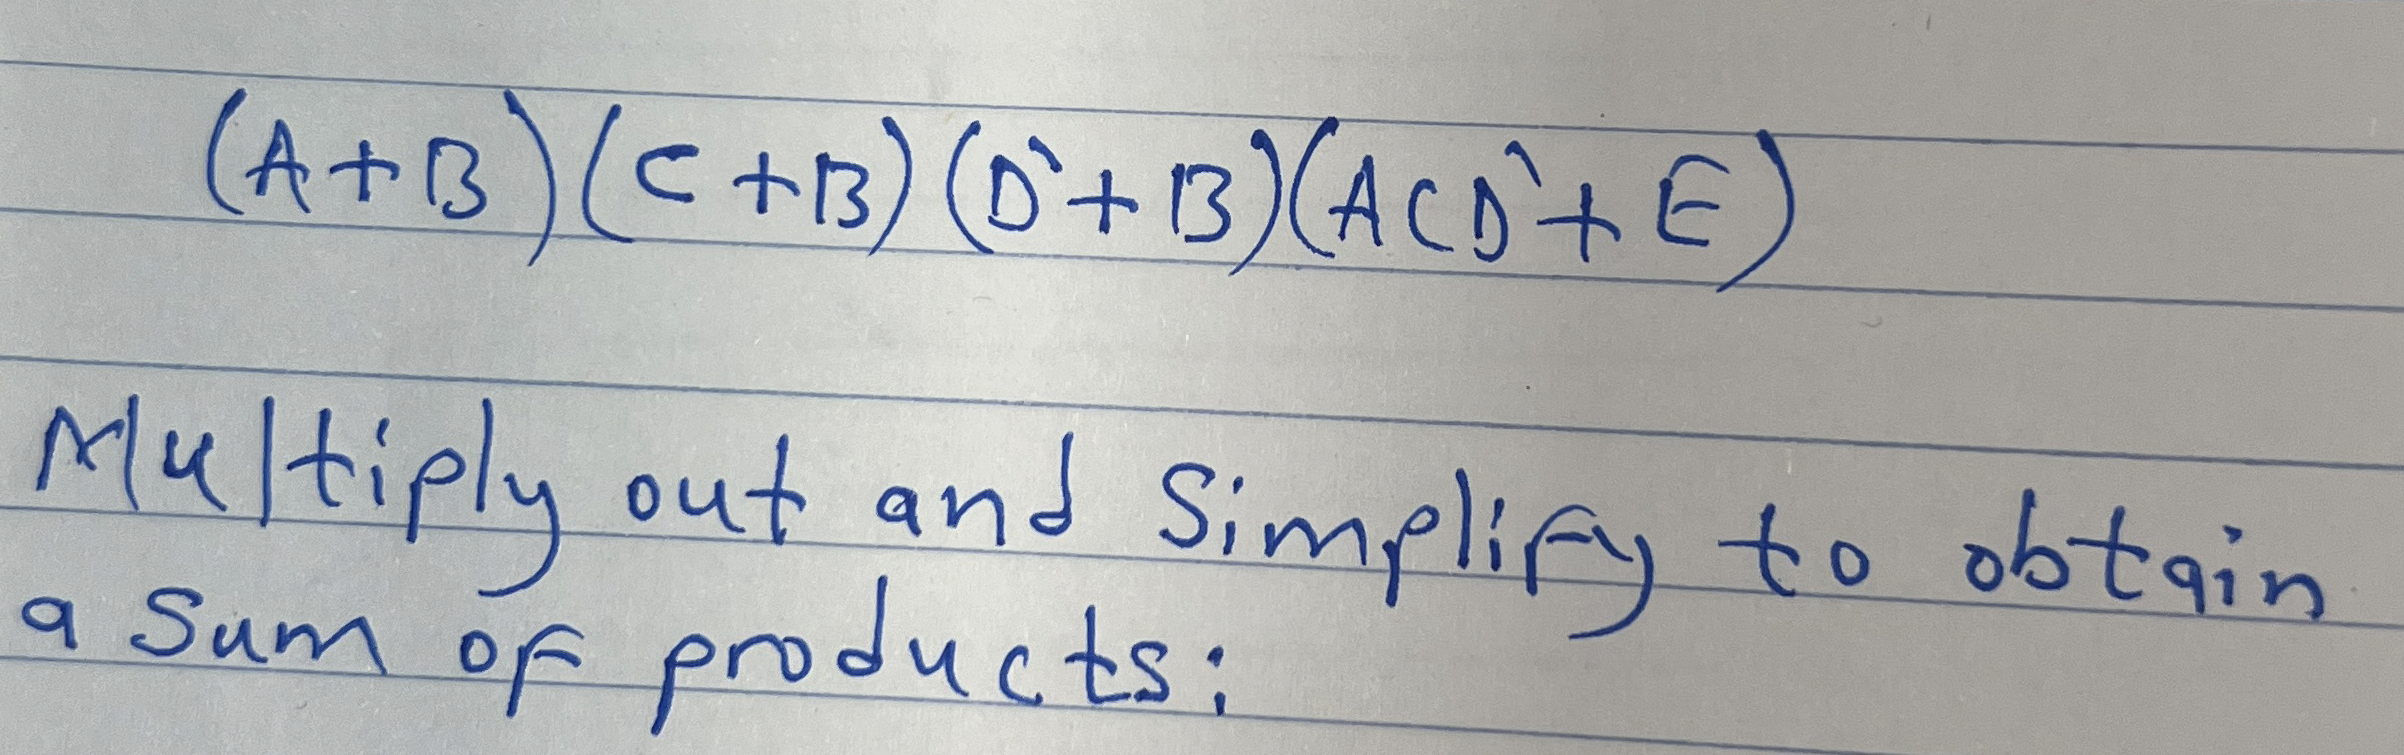 (A+B)(C+B)(D'+B)(ACD'+E)
Multiply out and Simplify to obtain
a Sum of products: